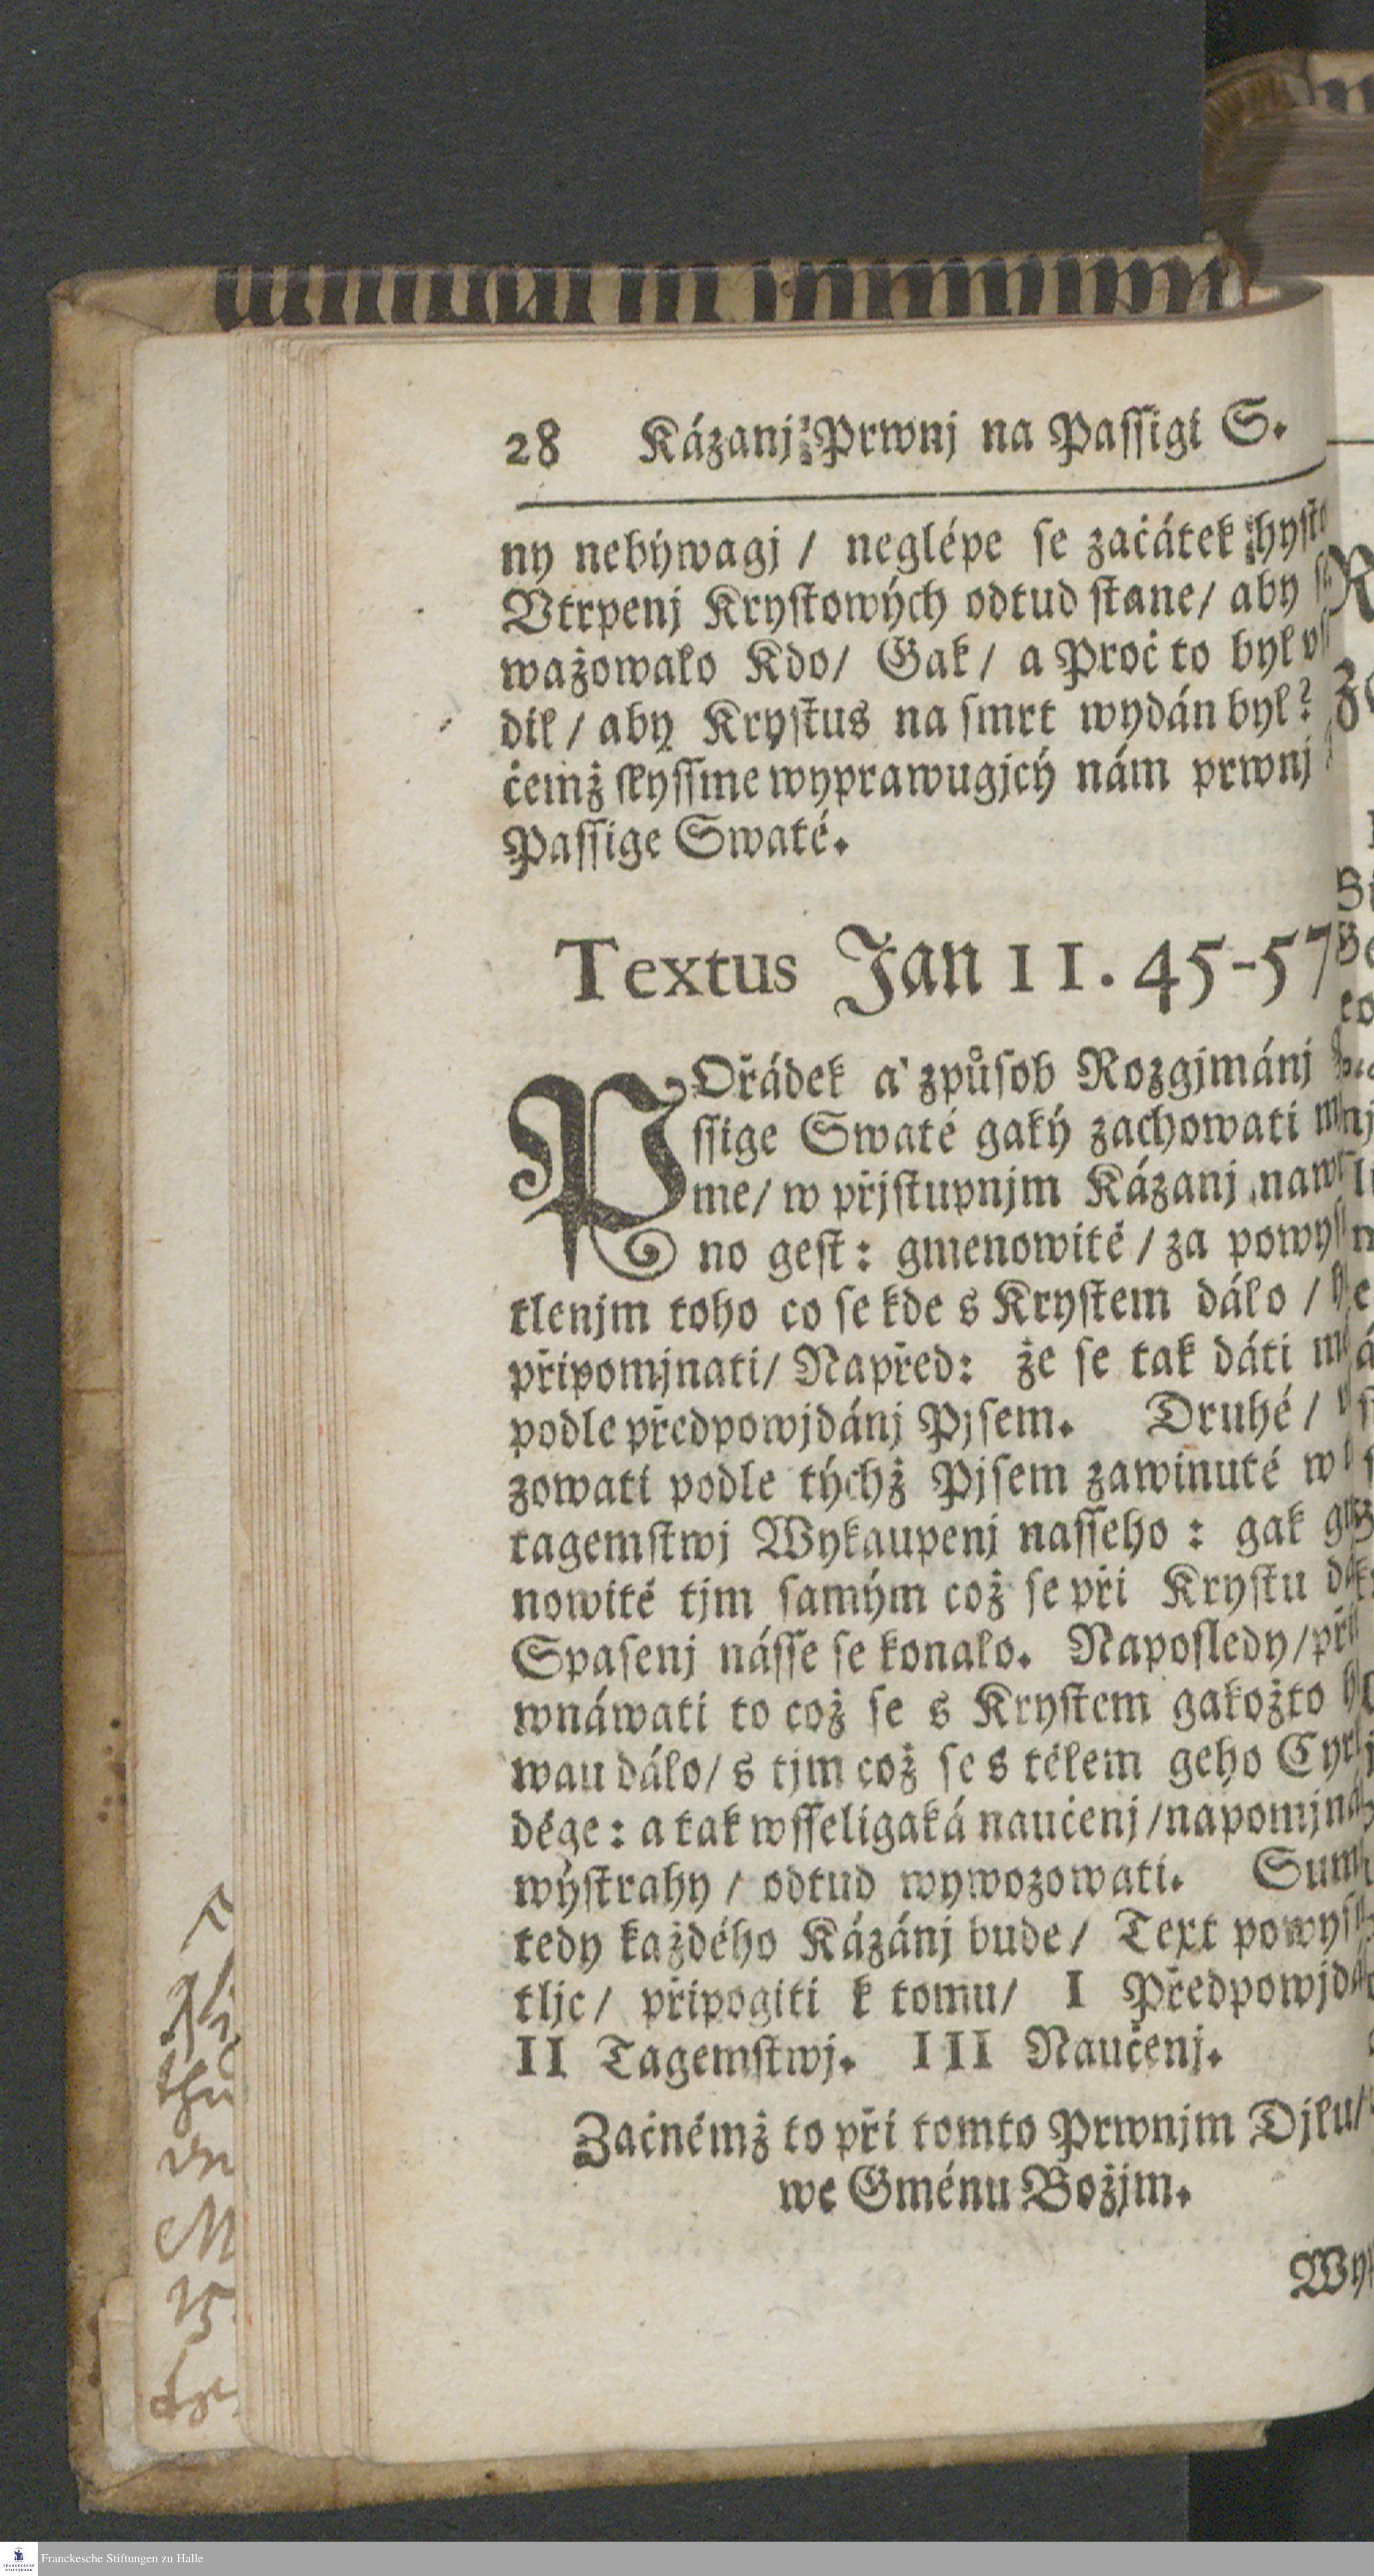 28 Kázanj Prwnj na Passigi S.
ny nebýwagj / neglépe se začátek
Vtrpenj Krystowých odtud stane/ aby
wažowalo Kdo/ Gak/ a Proč to byl
dil / aby Krystus na smrt wydán byl?
čemž slyssme wyprawugjcý nám prwnj
Passige Swaté.
Textus Jan 11. 45-57
POřádek a způsob Rozgjmánj
ssige Swaté gaký zachowati
me/ w přjstupnjm Kázanj
no gest: gmenowitě / za
tlenjm toho co se kde s Krystem dálo /
připomjnati/ Napřed: že se tak dáti
podle předpowjdánj Pjsem. Druhé /
zowati podle týchž Pjsem zawinuté
tagemstwj Wykaupenj nasseho : gak
nowitě tjm samým což se při Krystu
Spasenj násse se konalo. Naposledy/
wnáwati to což se s Krystem gakožto
wau dálo/ s tjm což se s tělem geho
děge: a tak wsseligaká naučenj /
wýstrahy / odtud wywozowati.
tedy každého Kázánj bude/ Text
tljc/ připogiti k tomu/ I
II Tagemstwj. III Naučenj.
Začněmž to při tomto Prwnjm Djlu/
we Gménu Božjm.
Franckesche Stiftungen zu Halle